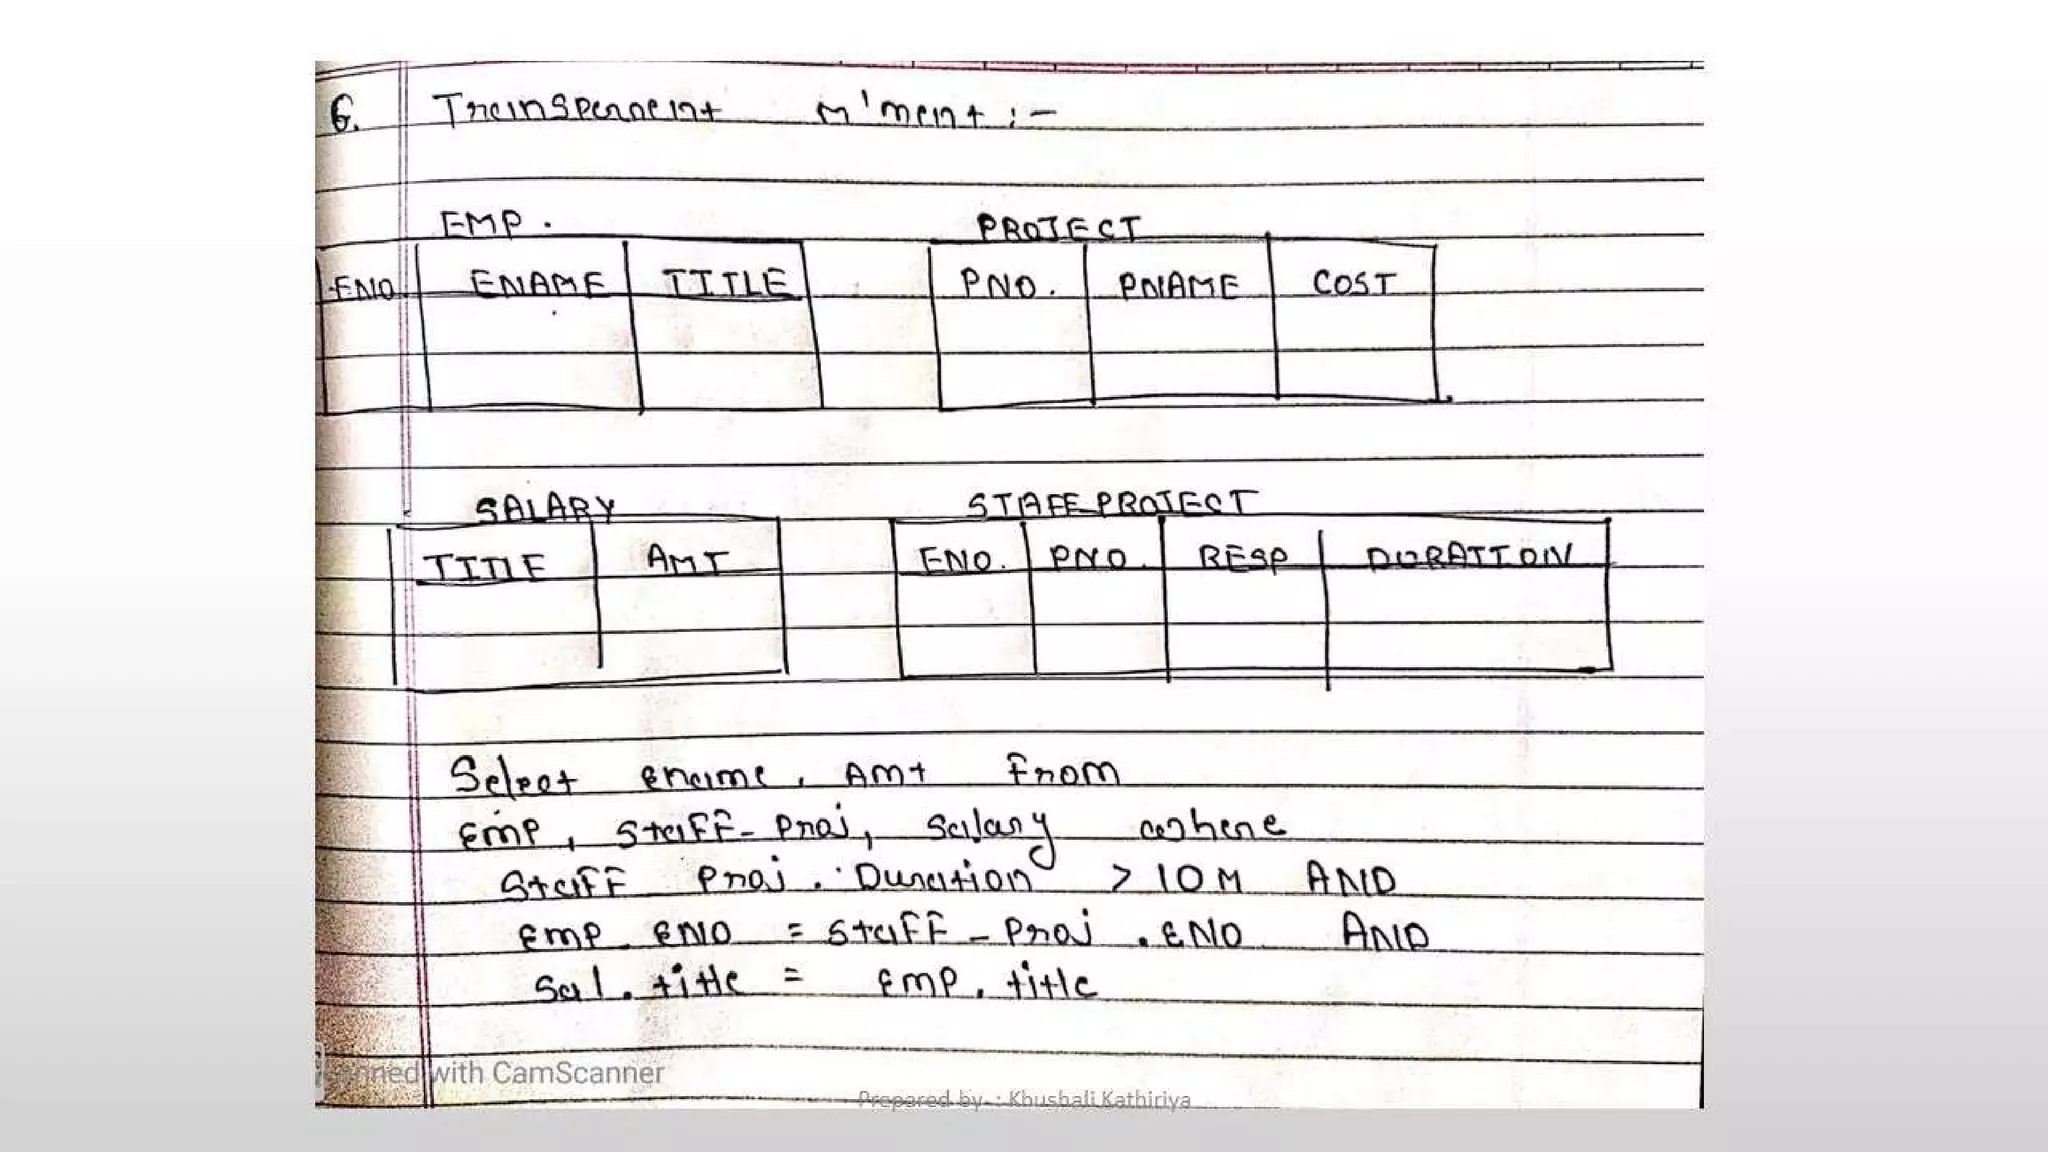 6. Transperent m'ment :-
EMP. PROJECT
ENO ENAME TITLE PNO. PNAME COST
SALARY STAFF PROJECT
TITLE AMT ENO. PNO. RESP DURATION
Select ename, Amt From
Emp, Staff-Proj, Salary where
Staff Proj. Duration > 10M AND
Emp. ENO = Staff-Proj. ENO AND
Sal. title = Emp. title
with CamScanner
Prepared by- : Khushali Kathiriya